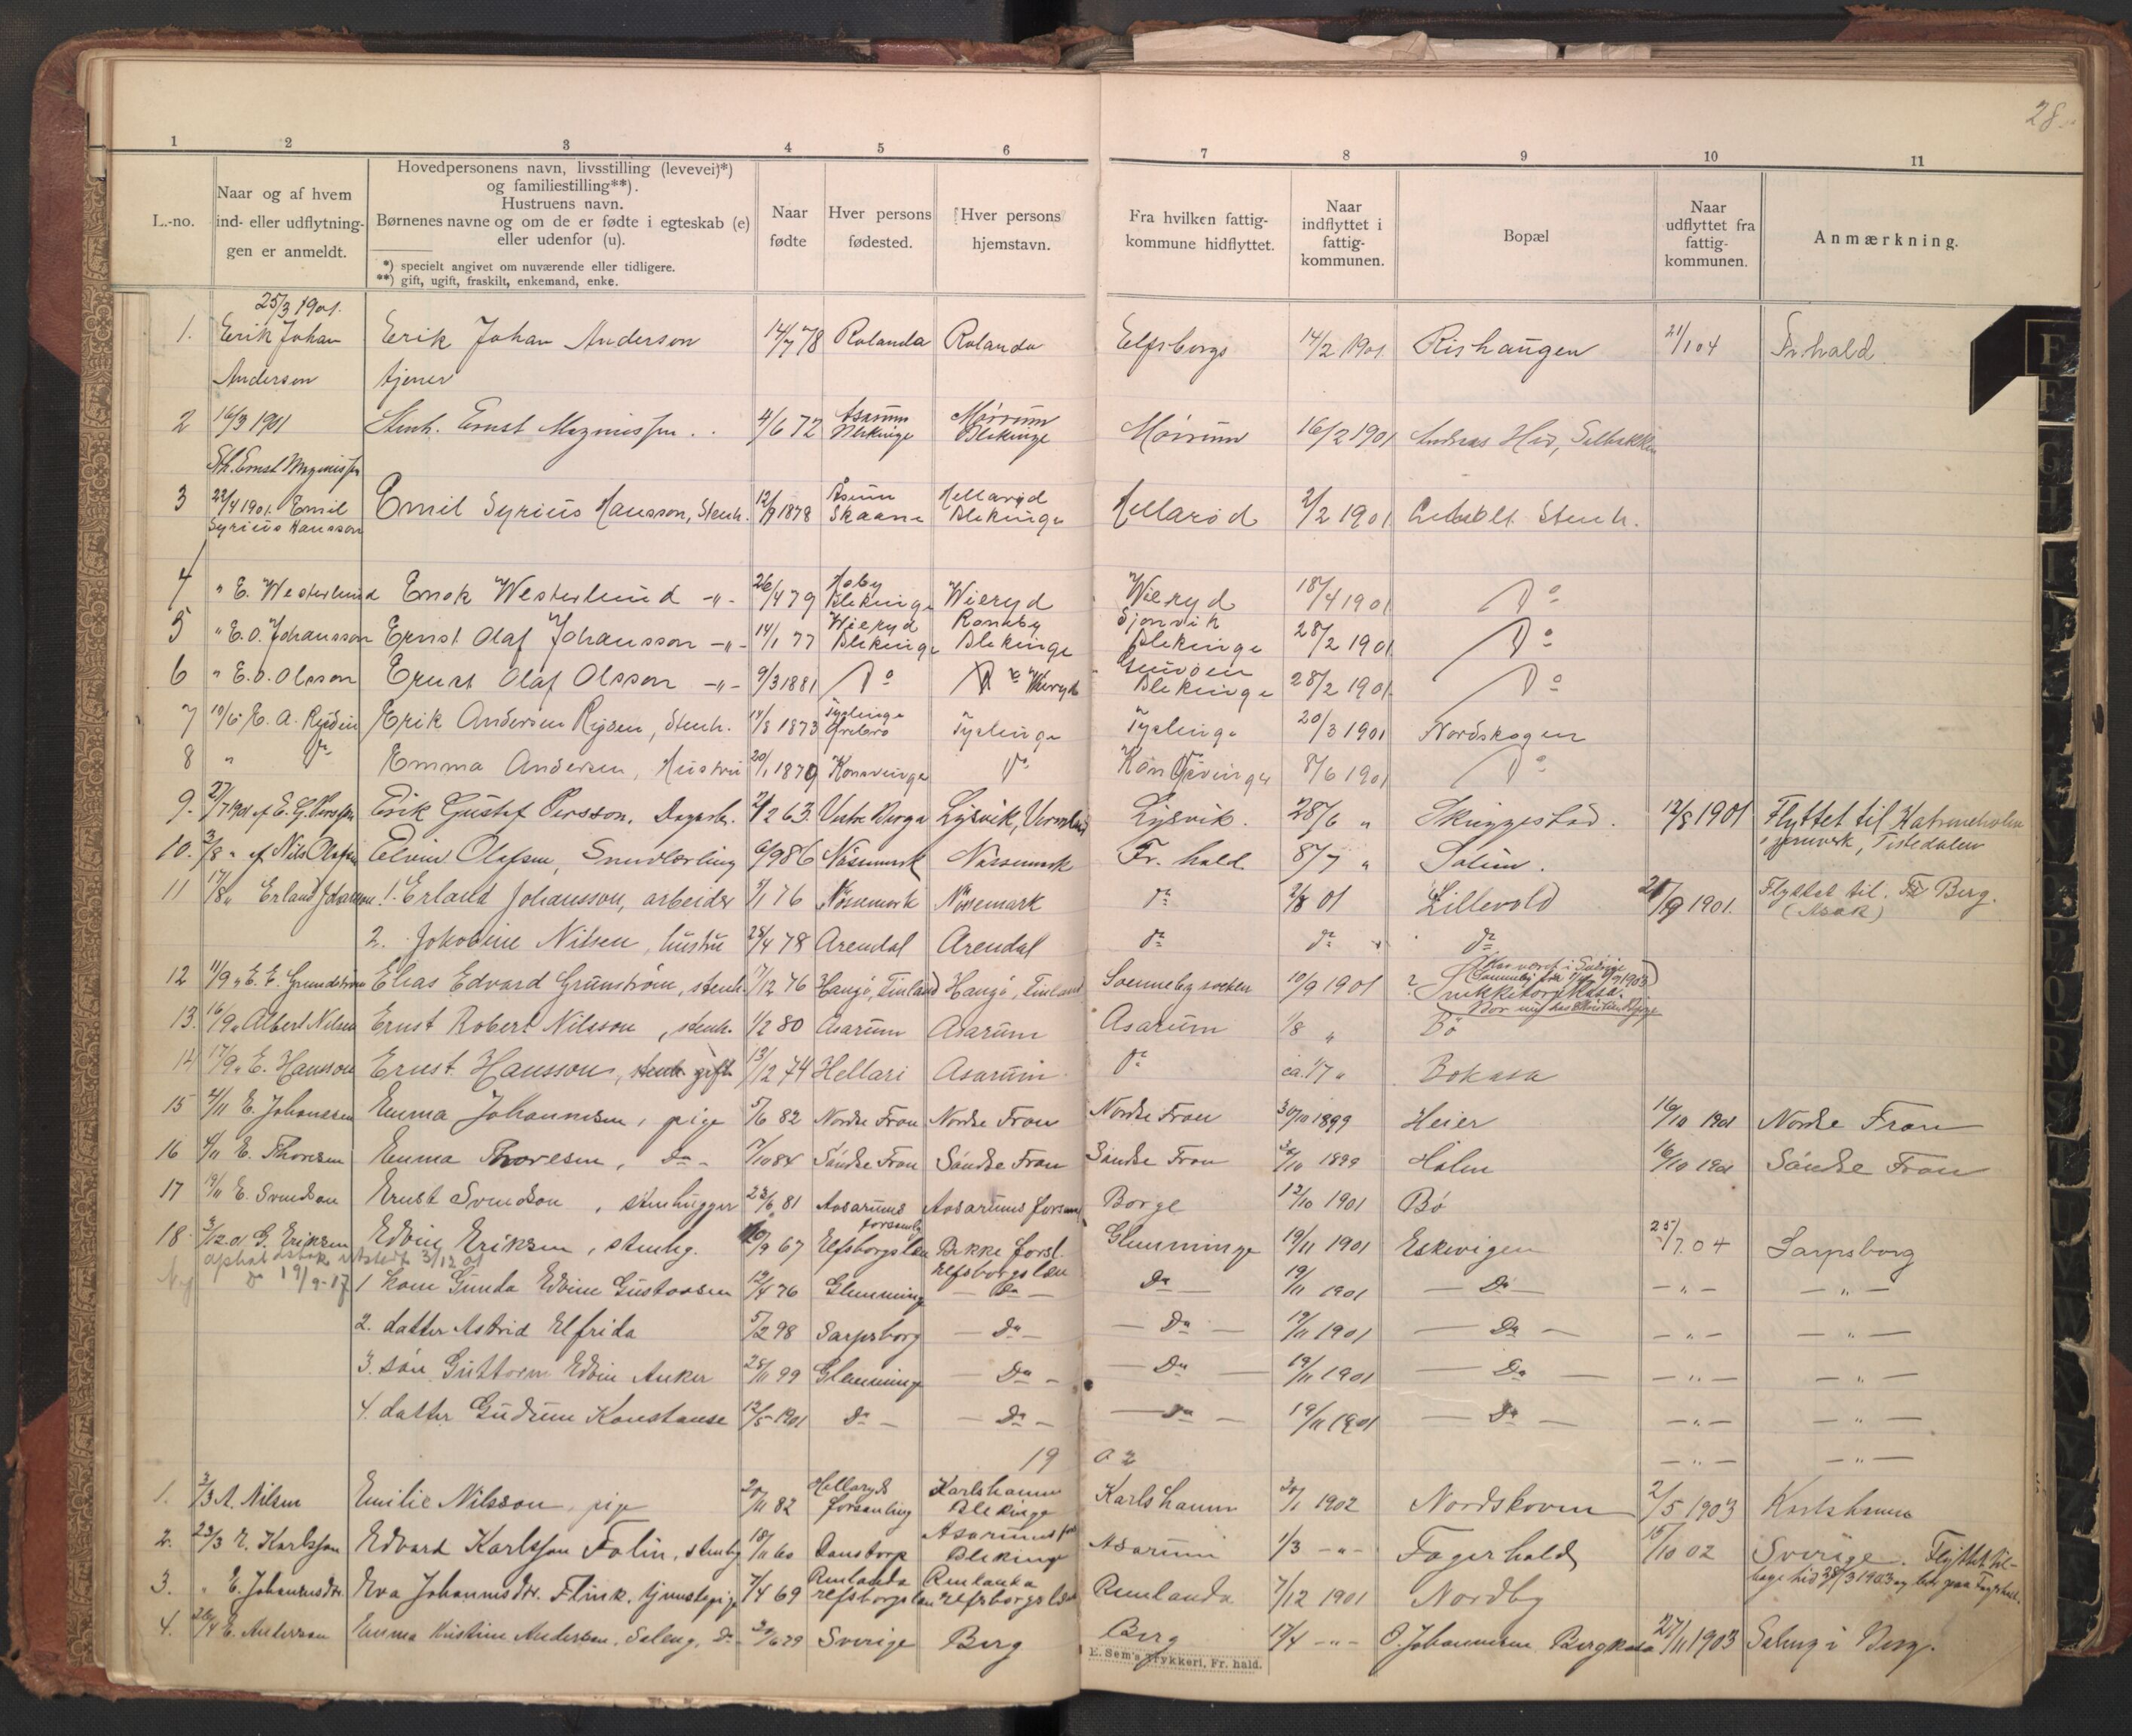 28.
1 2 3 4 5 6 7 8 9 10 11
L.-no.
Naar og af hvem
ind- eller udflytnin-
gen er anmeldt.
Hovedpersonens navn, livsstilling (levevei)*)
og familiestilling**).
Hustruens navn.
Børnenes navne og om de er fødte i egteskab (e)
eller udenfor (u).
*) specielt angivet om nuværende eller tidligere.
**) gift, ugift, fraskilt, enkemand, enke.
Naar
fødte
Hver persons
fødested.
Hver persons
hjemstavn.
Fra hvilken fattig-
kommune hidflyttet.
Naar
indflyttet i
fattig-
kommunen.
Bopæl
Naar
udflyttet fra
fattig-
kommunen.
Anmærkning.
25/3 1901.
1. Erik Johan Erik Johan Anderson 14/7 78 Rolanda Rolanda Elfsborgs 14/2 1901 Rishaugen 21/1 04 Fr.hald.
Anderson tjener
2 16/3 1901 Stenh. Ernst Magnusson 4/6 72 Asarum Blekinge Mörrum Blekinge Mörrum 16/2 1901
Sth. Ernst Magnusson
3 22/4 1901. Emil Syrius Hansson Emil Syrius Hansson, Stenh. 12/9 1878 Åsum Skaane Hellaryd Blekinge Hellaröd 2/2 1901 Stenh.
4 " E. Westerlund Enok Westerlund -"- 26/4 79 Hoby Blekinge Wieryd Wieryd 18/4 1901 Do
5 " E. O. Johansson Ernst Olaf Johansson -"- 14/1 77 Wieryd Blekinge Ronneby Blekinge Sjonvik Blekinge 28/2 1901 Do
6 " E. O. Olsson Ernst Olaf Olsson -"- 9/3 1881 Do Do Wieryd Blekinge 28/2 1901 Do
7 10/6 E. A. Rysen Erik Andersen Rysen, Stenh. 14/8 1873 Tyslinge Örebro Tyslinge Tyslinge 20/3 1901 Nordskogen
8 " Do Emma Andersen, Hustru 20/1 1879 Konsvinge Do Kongsvinger 8/6 1901 Do
9. 27/7 1901 af E. G. Persson Erik Gustaf Persson, Dagarb. 63 Vestre Berga Lysvik, Vermland Lysvik. 28/6 " Skriggestad. 12/8 1901 Flyttet til Katrineholm
jernverk, Tistedalen
10. 3/8 " af Nils Olafsen Elvin Olafsen, Smedlærling 6/9 86 Nössemark Nössemark Fr. hald 8/7 " Solum.
11 17/8 " Erland Johansson 1. Erland Johansson, arbeider 5/1 76 Nössemark Nössemark Do 2/8 01 Lillevold 1901. Flyttet til Berg.
(Asak)
2. Jakobine Nilsen, hustru 28/4 78 Arendal Arendal Do Do Do
12 11/9 " E. E. Grundström Elias Edvard Grünström, stenh. 7/12 76 Hangö, Finland Hangö, Finland Svenneby socken 10/9 1901
13. 16/9 " Albert Nilsen Ernst Robert Nilsson, stenh. 1/2 80 Asarum Asarum Asarum 1/8 " Bö
14 17/9 " E. Hansson Ernst Hansson, stenh. gift 13/12 74 Hellari Asarum Do ca. 1/7 " Bokasa
15 4/11 E. Johansen Emma Johannesen, pige 5/6 82 Nordre Fron Nordre Fron Nordre Fron 30/10 1899 Heier 16/10 1901 Nordre Fron
16 4/11 E. Thoresen Emma Thoresen, Do - 7/10 84 Söndre Fron Söndre Fron Söndre Fron 30/10 1899 Holm 16/10 1901 Söndre Fron
17 19/11 E. Svendson Ernst Svendson, stenhugger 23/6 81 Aasarums forsamlg Aasarums forsaml Borge 12/10 1901 Bö
18 3/12 01 G. Eriksen Edvin Eriksen, stenhg. 10/9 67 Elfsborgslæn Bække forsl. Elfsborgslæn Glemminge 19/11 1901 Eskevigen 25/7 04 Sarpsborg
opholdsbok utstedt 3/12 01
Ny Do 19/9-17 1 kone Gunda Edvine Gustavsen 12/4 76 Glemminge - Do - Do - 19/11 1901 - Do - - " - - " -
2. datter Astrid Elfrida 5/2 98 Sarpsborg - Do - - Do - 19/11 1901 - Do - - " - - " -
3. sön Guttorm Edvin Anker 28/11 99 Glemminge - Do - - Do - 19/11 1901 - Do - - " - - " -
4. datter Gudrun Konstanse 12/5 1901 Do - - Do - - Do - 19/11 1901 - Do - - " - - " -
19 02
- " - - " -
1. 3/3 A. Nilsen Emilie Nilsson, pige 20/11 82 Hellaryds forsamling Karlshamn Blekinge Karlshamn 30/1 1902 Nordskoven 2/5 1903 Karlshamn
2. 23/3 E. Karlsson Edvard Karlsson Folin, stenhg 18/11 60 Ranstorp Asarums Blekinge Asarum 1/3 - " - Fagerhold 15/10 02 Sverige. Flyttet til-
bage hid 28/3 1903
3. " E. Johannesdr. Eva Johannisdr. Flink, tjenstepige 7/4 69 Remlanda Elfsborgslæn Elfsborgslæn Remlanda 7/12 1901 Nordby
4. 26/4 E. Anderson Emma Kristine Anderson, Do - 29 Sverige Berg Berg 17/4 - " - O. Johannesen Bergkasa 27/11 1903 i Berg.
E. Sem's Trykkeri, Fr. hald.
E
F
G
H